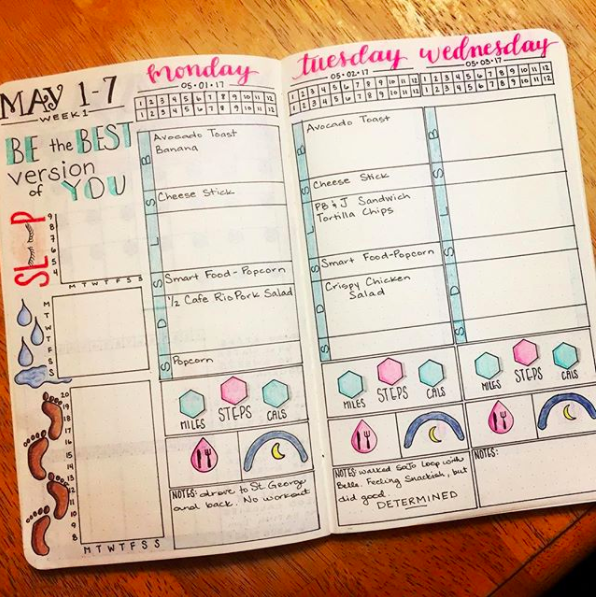 MAY 1-7
WEEK 1
BE the BEST
version
of YOU
SLEEP
9
8
7
6
5
4
M T W T F S S
M
T
W
T
F
S
S
20
19
18
17
16
15
14
13
12
11
10
9
8
M T W T F S S
monday
05·01·17
1 2 3 4 5 6 7 8 9 10 11 12
1 2 3 4 5 6 7 8 9 10 11 12
B
Avocado Toast
Banana
S
Cheese Stick
L
S
Smart Food-Popcorn
D
1/2 Cafe Rio Pork Salad
S
Popcorn
MILES STEPS CALS
NOTES: drove to St George
and back. No workout
tuesday
05·02·17
1 2 3 4 5 6 7 8 9 10 11 12
1 2 3 4 5 6 7 8 9 10 11 12
B
Avocado Toast
S
Cheese Stick
L
PB & J Sandwich
Tortilla Chips
S
Smart Food-Popcorn
D
Crispy Chicken
Salad
S
MILES STEPS CALS
NOTES: walked SoJo Loop with
Bells. Feeling Snackish, but
did good.
DETERMINED
wednesday
05·03·17
1 2 3 4 5 6 7 8 9 10 11 12
1 2 3 4 5 6 7 8 9 10 11 12
B
S
L
S
D
S
MILES STEPS CALS
NOTES: